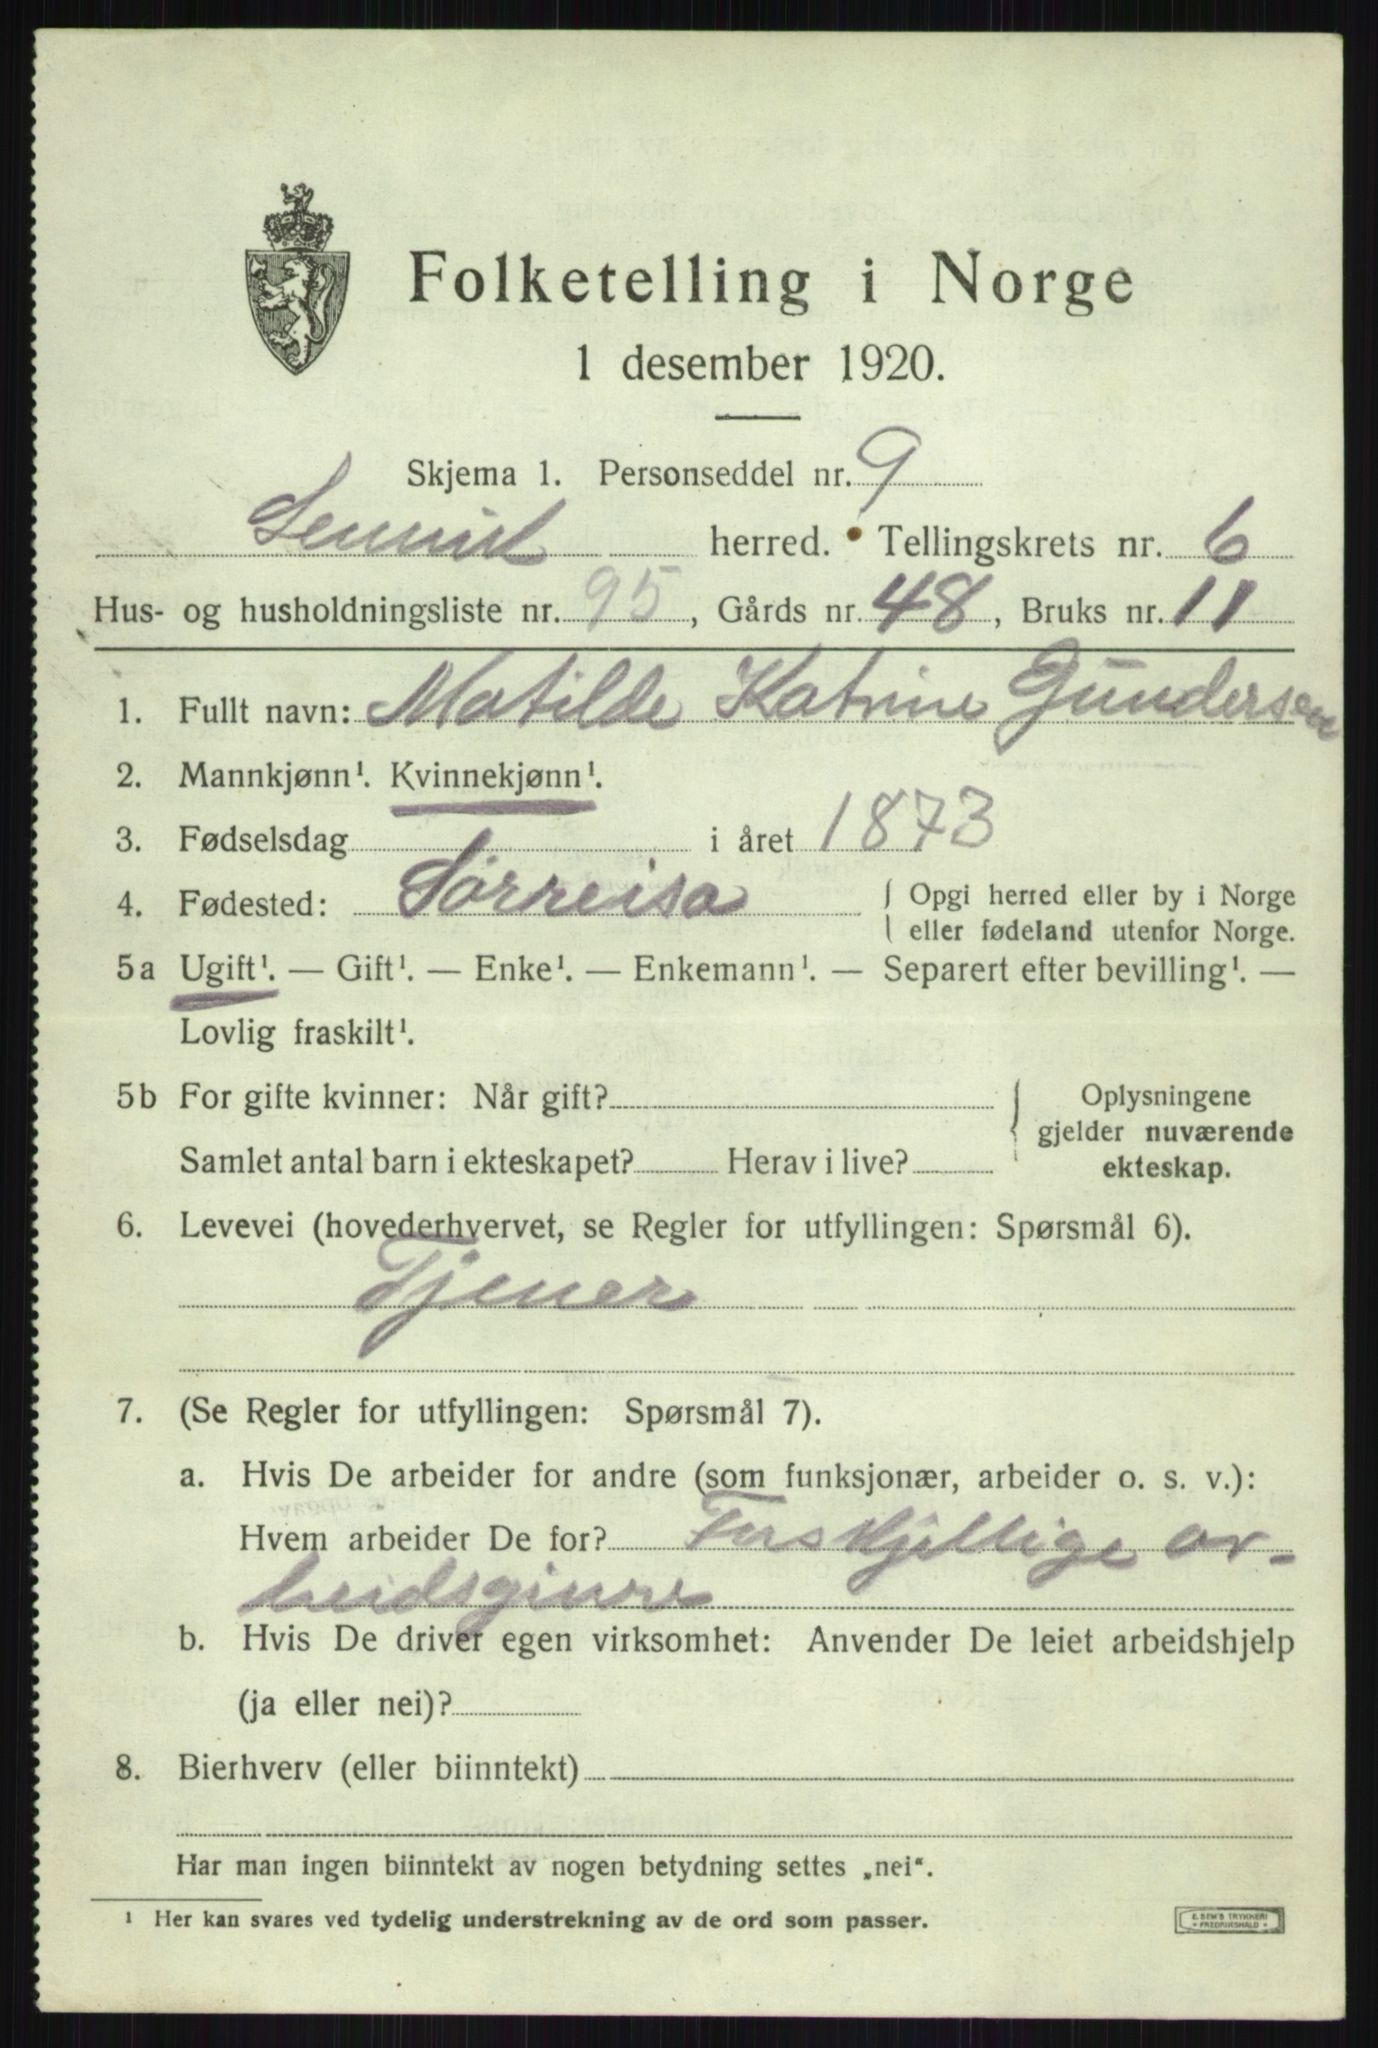 Folketelling i Norge
1 desember 1920.
Skjema 1. Personseddel nr. 9
Lenvik herred. Tellingskrets nr. 6
Hus- og husholdningsliste nr. 95, Gårds nr. 48, Bruks nr. 11
1. Fullt navn: Matilde Katrine Gundersen
2. Mannkjønn¹. Kvinnekjønn¹.
3. Fødselsdag i året 1873
4. Fødested: Sørreisa { Opgi herred eller by i Norge
eller fødeland utenfor Norge.
5a Ugift¹. — Gift¹. — Enke¹. — Enkemann¹. — Separert efter bevilling¹. —
Lovlig fraskilt¹.
5b For gifte kvinner: Når gift? { Oplysningene
gjelder nuværende
Samlet antal barn i ekteskapet? Herav i live? ekteskap.
6. Levevei (hovederhvervet, se Regler for utfyllingen: Spørsmål 6).
Tjener
7. (Se Regler for utfyllingen: Spørsmål 7).
a. Hvis De arbeider for andre (som funksjonær, arbeider o. s. v.):
Hvem arbeider De for? Forskjellige ar-
beidsgivere
b. Hvis De driver egen virksomhet: Anvender De leiet arbeidshjelp
(ja eller nei)?
8. Bierhverv (eller biinntekt)
Har man ingen biinntekt av nogen betydning settes „nei“.
¹ Her kan svares ved tydelig understrekning av de ord som passer.
E. SEM'S TRYKKERI
• FREDRIKSHALD •